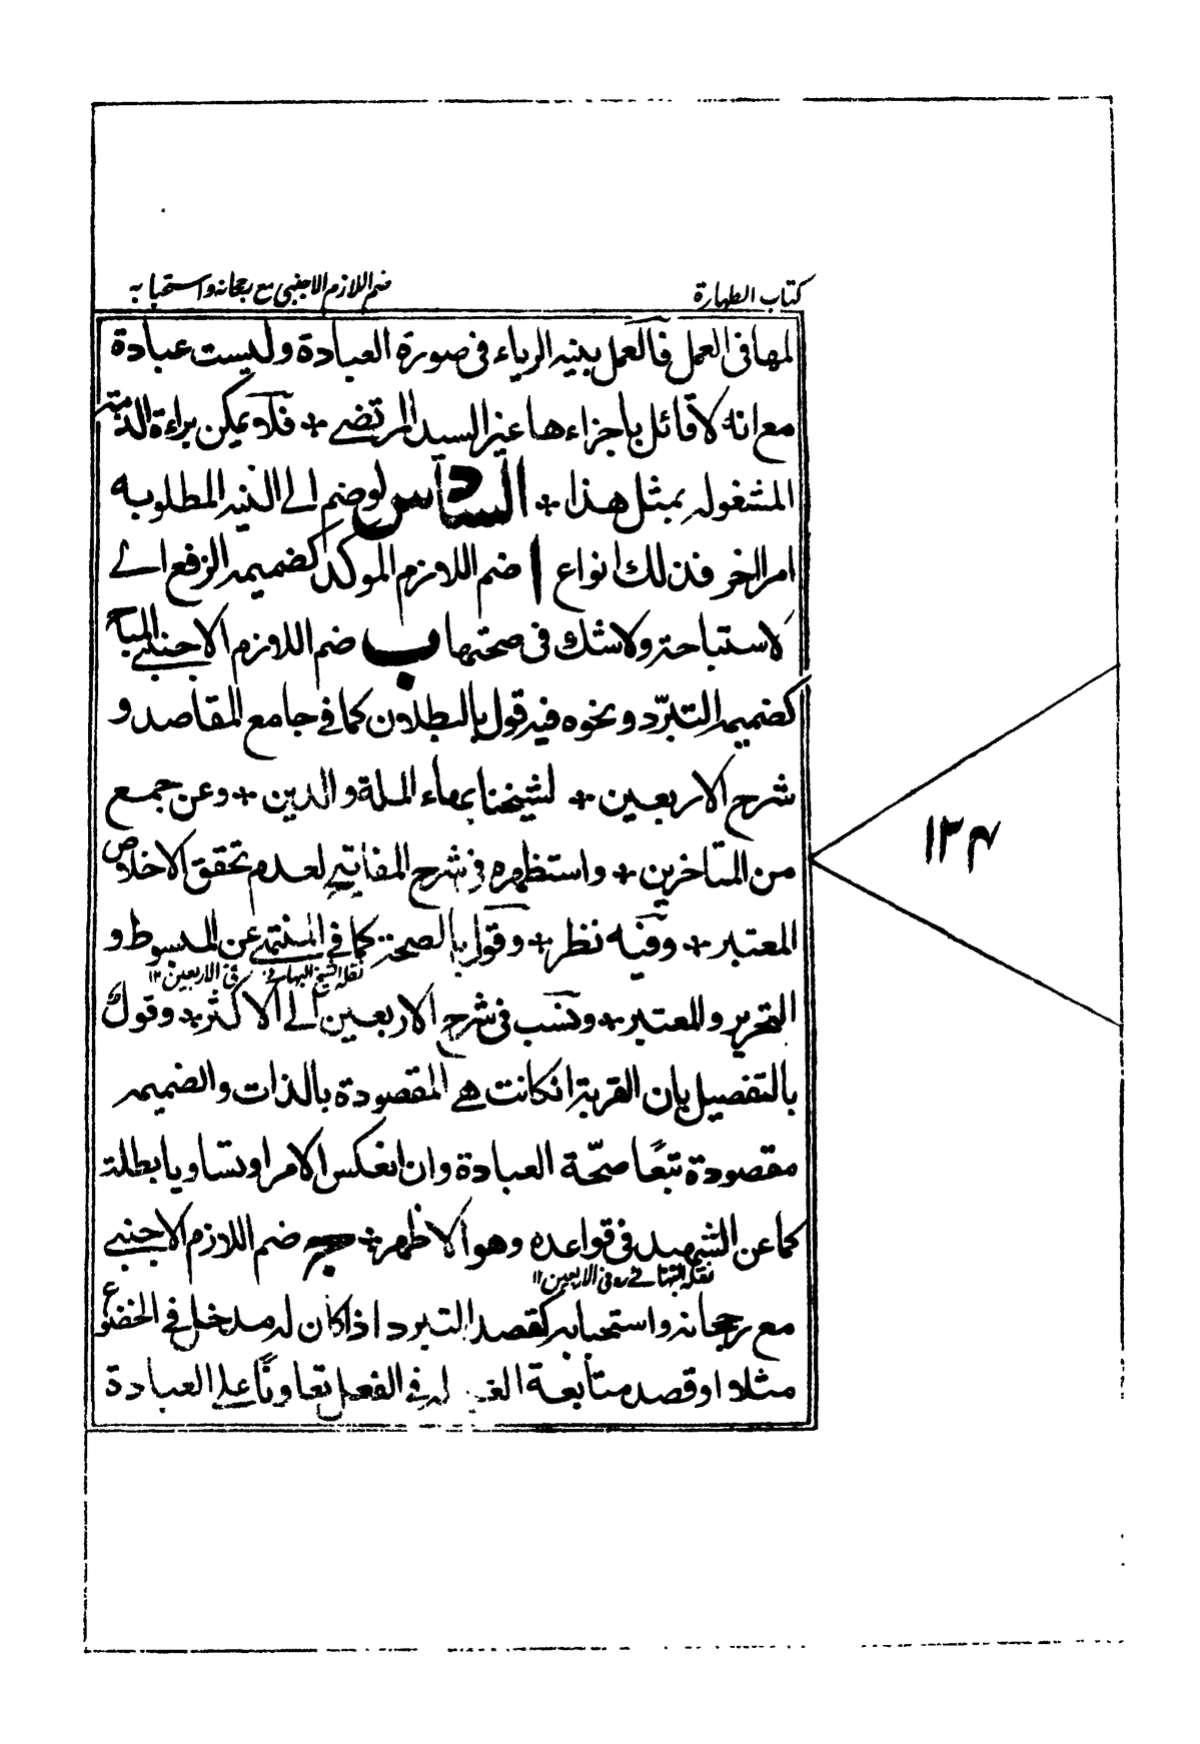 كتاب الطهارة
ضم اللازم الاجنبي مع رجحانه واستحبابه
لها في العمل فالعمل بنيه الرياء في صورة العبادة وليست عبادة
مع انه لا قائل باجزاءها غير السيد المرتضى + فلا يمكن براءة الذمة
المشغوله بمثل هذا + السادس لو ضم الى النيه المطلوبه
امر اخر فذلك انواع ا ضم اللازم الموكد كضميمه الرفع الى
لاستباحة ولا شك في صحتها ب ضم اللازم الاجنبي المباح
كضميمه التبرّد ونحوه فيه قول بالبطلان كما في جامع المقاصد و
شرح الاربعين + لشيخنا بهاء الملة والدين + وعن جمع
من المتاخرين + واستظهره في شرح المفاتيح لعدم تحقق الاخلاص
المعتبر + وفيه نظر + وقول بالصحة كما في المنتهى عن المبسوط و
نقله الشيخ البهائي في الاربعين ١٢
التحرير والمعتبر + ونسب في شرح الاربعين الى الاكثر + وقول
بالتفصيل بان القربة انكانت هي المقصودة بالذات والضميمه
مقصودة تبعًا صحّة العبادة وان انعكس الامر او تساويا بطلت
كما عن الشهيد في قواعده وهو الاظهر + ج ضم اللازم الاجنبي
نقله البهائي في الاربعين ١٢
مع رجحانه واستحبابه كقصد التبرد اذا كان له مدخل في الخضوع
مثلا او قصد متابعة الغير له في الفعل تعاونًا على العبادة
١٣۴